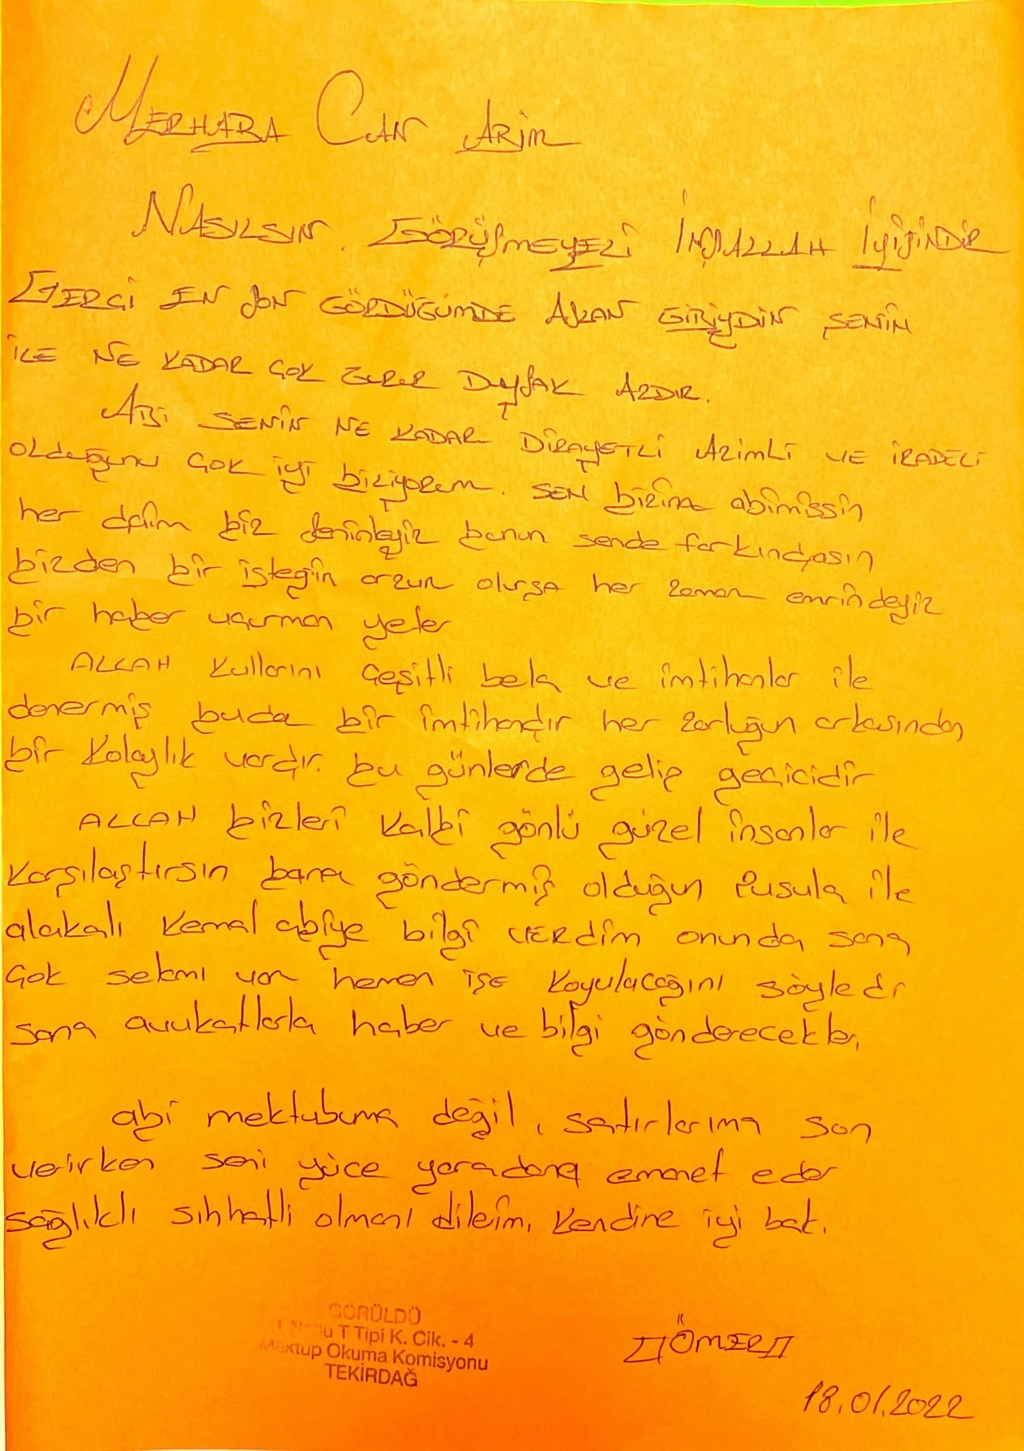 MERHABA CAN ABİM
NASILSIN. GÖRÜŞMEYELİ İNŞALLAH İYİSİNDİR
GERÇİ EN SON GÖRDÜĞÜMDE ASLAN GİBİYDİN SENİN
İLE NE KADAR ÇOK GURUR DUYSAK AZDIR.
ABİ SENİN NE KADAR DİRAYETLİ AZİMLİ VE İRADELİ
olduğunu ÇOK iyi biliyorum. SEN bizim abimissin
her daim biz seninleyiz bunun sende farkındasın
bizden bir isteğin arzun olursa her zaman emrindeyiz
bir haber uçurman yeter
ALLAH kullarını çeşitli bela ve imtihanlar ile
denermiş buda bir imtihandır her zorluğun arkasından
bir kolaylık vardır. bu günlerde gelip geçicidir
ALLAH bizleri kalbi gönlü güzel insanlar ile
karşılaştırsın bana göndermiş olduğun pusula ile
alakalı kemal abiye bilgi VERdim onunda sana
çok selamı var hemen işe koyulacağını söyledi
sana avukatlarla haber ve bilgi gönderecekler.
abi mektubuma değil, satırlarıma son
verirken seni yüce yaradana emanet eder
sağlıklı sıhhatli olmanı dilerim, kendine iyi bak.
GÖRÜLDÜ
T Tipi K. Cik. - 4
Mektup Okuma Komisyonu
TEKİRDAĞ
ÖMER
18.01.2022